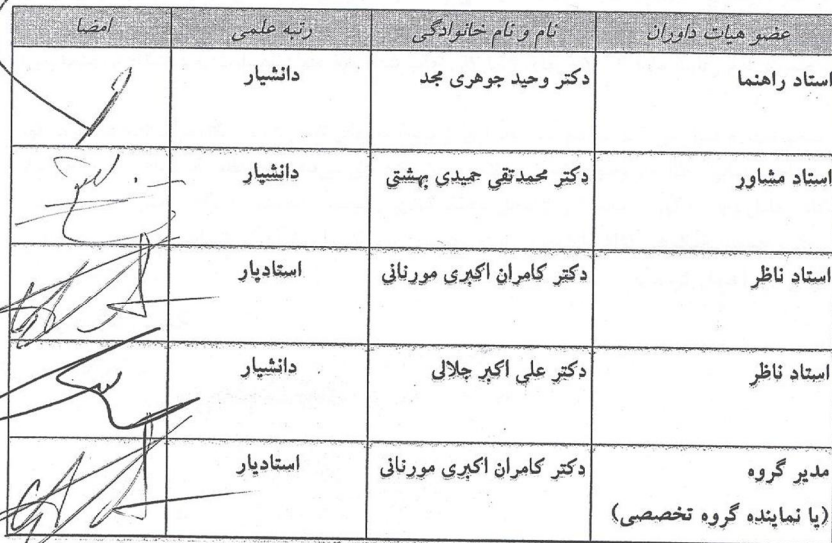 عضو هیات داوران نام و نام خانوادگی رتبه علمی امضا
استاد راهنما دکتر وحید جوهری مجد دانشیار
استاد مشاور دکتر محمدتقی حمیدی بهشتی دانشیار
استاد ناظر دکتر کامران اکبری مورنانی استادیار
استاد ناظر دکتر علی اکبر جلالی دانشیار
مدیر گروه دکتر کامران اکبری مورنانی استادیار
(یا نماینده گروه تخصصی)